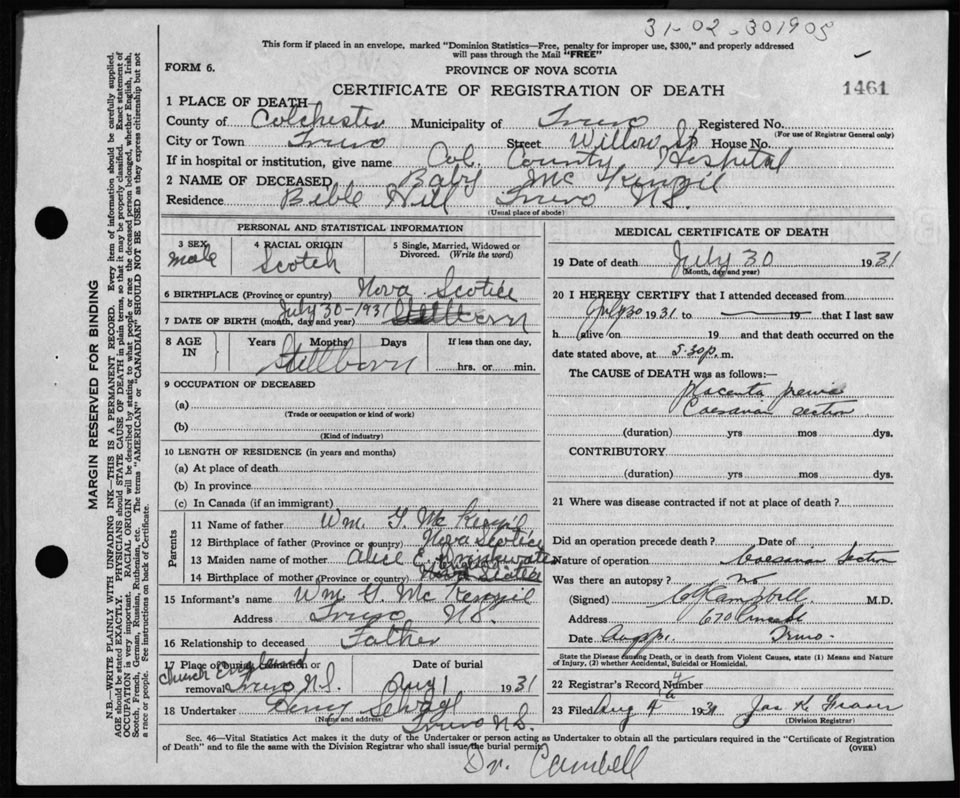 31-02-301905
This form if placed in an envelope, marked "Dominion Statistics—Free, penalty for improper use, $300," and properly addressed
will pass through the Mail "FREE"
FORM 6.
PROVINCE OF NOVA SCOTIA
CERTIFICATE OF REGISTRATION OF DEATH
1461
1 PLACE OF DEATH
County of Colchester Municipality of Truro Registered No.
(For use of Registrar General only)
City or Town Truro Street Willow St House No.
If in hospital or institution, give name Col. County Hospital
2 NAME OF DECEASED Baby Mc Kenzil
Residence Bible Hill Truro N.S.
(Usual place of abode)
PERSONAL AND STATISTICAL INFORMATION
3 SEX
male
4 RACIAL ORIGIN
Scotch
5 Single, Married, Widowed or
Divorced. (Write the word)
6 BIRTHPLACE (Province or country) Nova Scotia
July 30-1931
7 DATE OF BIRTH (month, day and year) Stillborn
8 AGE
IN
Years Months Days
If less than one day,
Stillborn
hrs. or min.
9 OCCUPATION OF DECEASED
(a)
(Trade or occupation or kind of work)
(b)
(Kind of industry)
10 LENGTH OF RESIDENCE (in years and months)
(a) At place of death
(b) In province
(c) In Canada (if an immigrant)
Parents
11 Name of father Wm. G. Mc Kenzil
12 Birthplace of father (Province or country) Nova Scotia
13 Maiden name of mother Alice E. Drinkwater
14 Birthplace of mother (Province or country) Nova Scotia
15 Informant's name Wm. G. Mc Kenzil
Address Truro N.S.
16 Relationship to deceased Father
17 Place of burial, cremation or
removal
Church England
Truro N.S.
Date of burial
Aug 1 1931
18 Undertaker
(Name and address)
Truro N.S.
MEDICAL CERTIFICATE OF DEATH
19 Date of death July 30 1931
(Month, day and year)
20 I HEREBY CERTIFY that I attended deceased from
July 30 1931 to 19 that I last saw
h alive on 19 and that death occurred on the
date stated above, at 5.30 p. m.
The CAUSE of DEATH was as follows:
placenta previa
Caesarian section
(duration) yrs mos dys.
CONTRIBUTORY
(duration) yrs mos dys.
21 Where was disease contracted if not at place of death?
Did an operation precede death? Date of
Nature of operation Caesarian Section
Was there an autopsy? no
(Signed) Campbell. M.D.
Address 670 Prince St
Date Truro.
State the Disease causing Death, or in death from Violent Causes, state (1) Means and Nature
of Injury, (2) whether Accidental, Suicidal or Homicidal.
22 Registrar's Record Number 4
23 Filed Aug 4th 1931 Jas K. Fraser
(Division Registrar)
Sec. 46—Vital Statistics Act makes it the duty of the Undertaker or person acting as Undertaker to obtain all the particulars required in the "Certificate of Registration
of Death" and to file the same with the Division Registrar who shall issue the burial permit.
(OVER)
Dr. Cambell
MARGIN RESERVED FOR BINDING
N.B.—WRITE PLAINLY WITH UNFADING INK—THIS IS A PERMANENT RECORD. Every item of information should be carefully supplied.
AGE should be stated EXACTLY. PHYSICIANS should STATE CAUSE OF DEATH in plain terms, so that it may be properly classified. Exact statement of
OCCUPATION is very important. RACIAL ORIGIN will be described by stating to what people or race the deceased person belonged, whether English, Irish,
Scotch, French, German, Russian, Ruthenian, etc. The terms "AMERICAN" or "CANADIAN" SHOULD NOT BE USED as they express citizenship but not
a race or people. See instructions on back of Certificate.